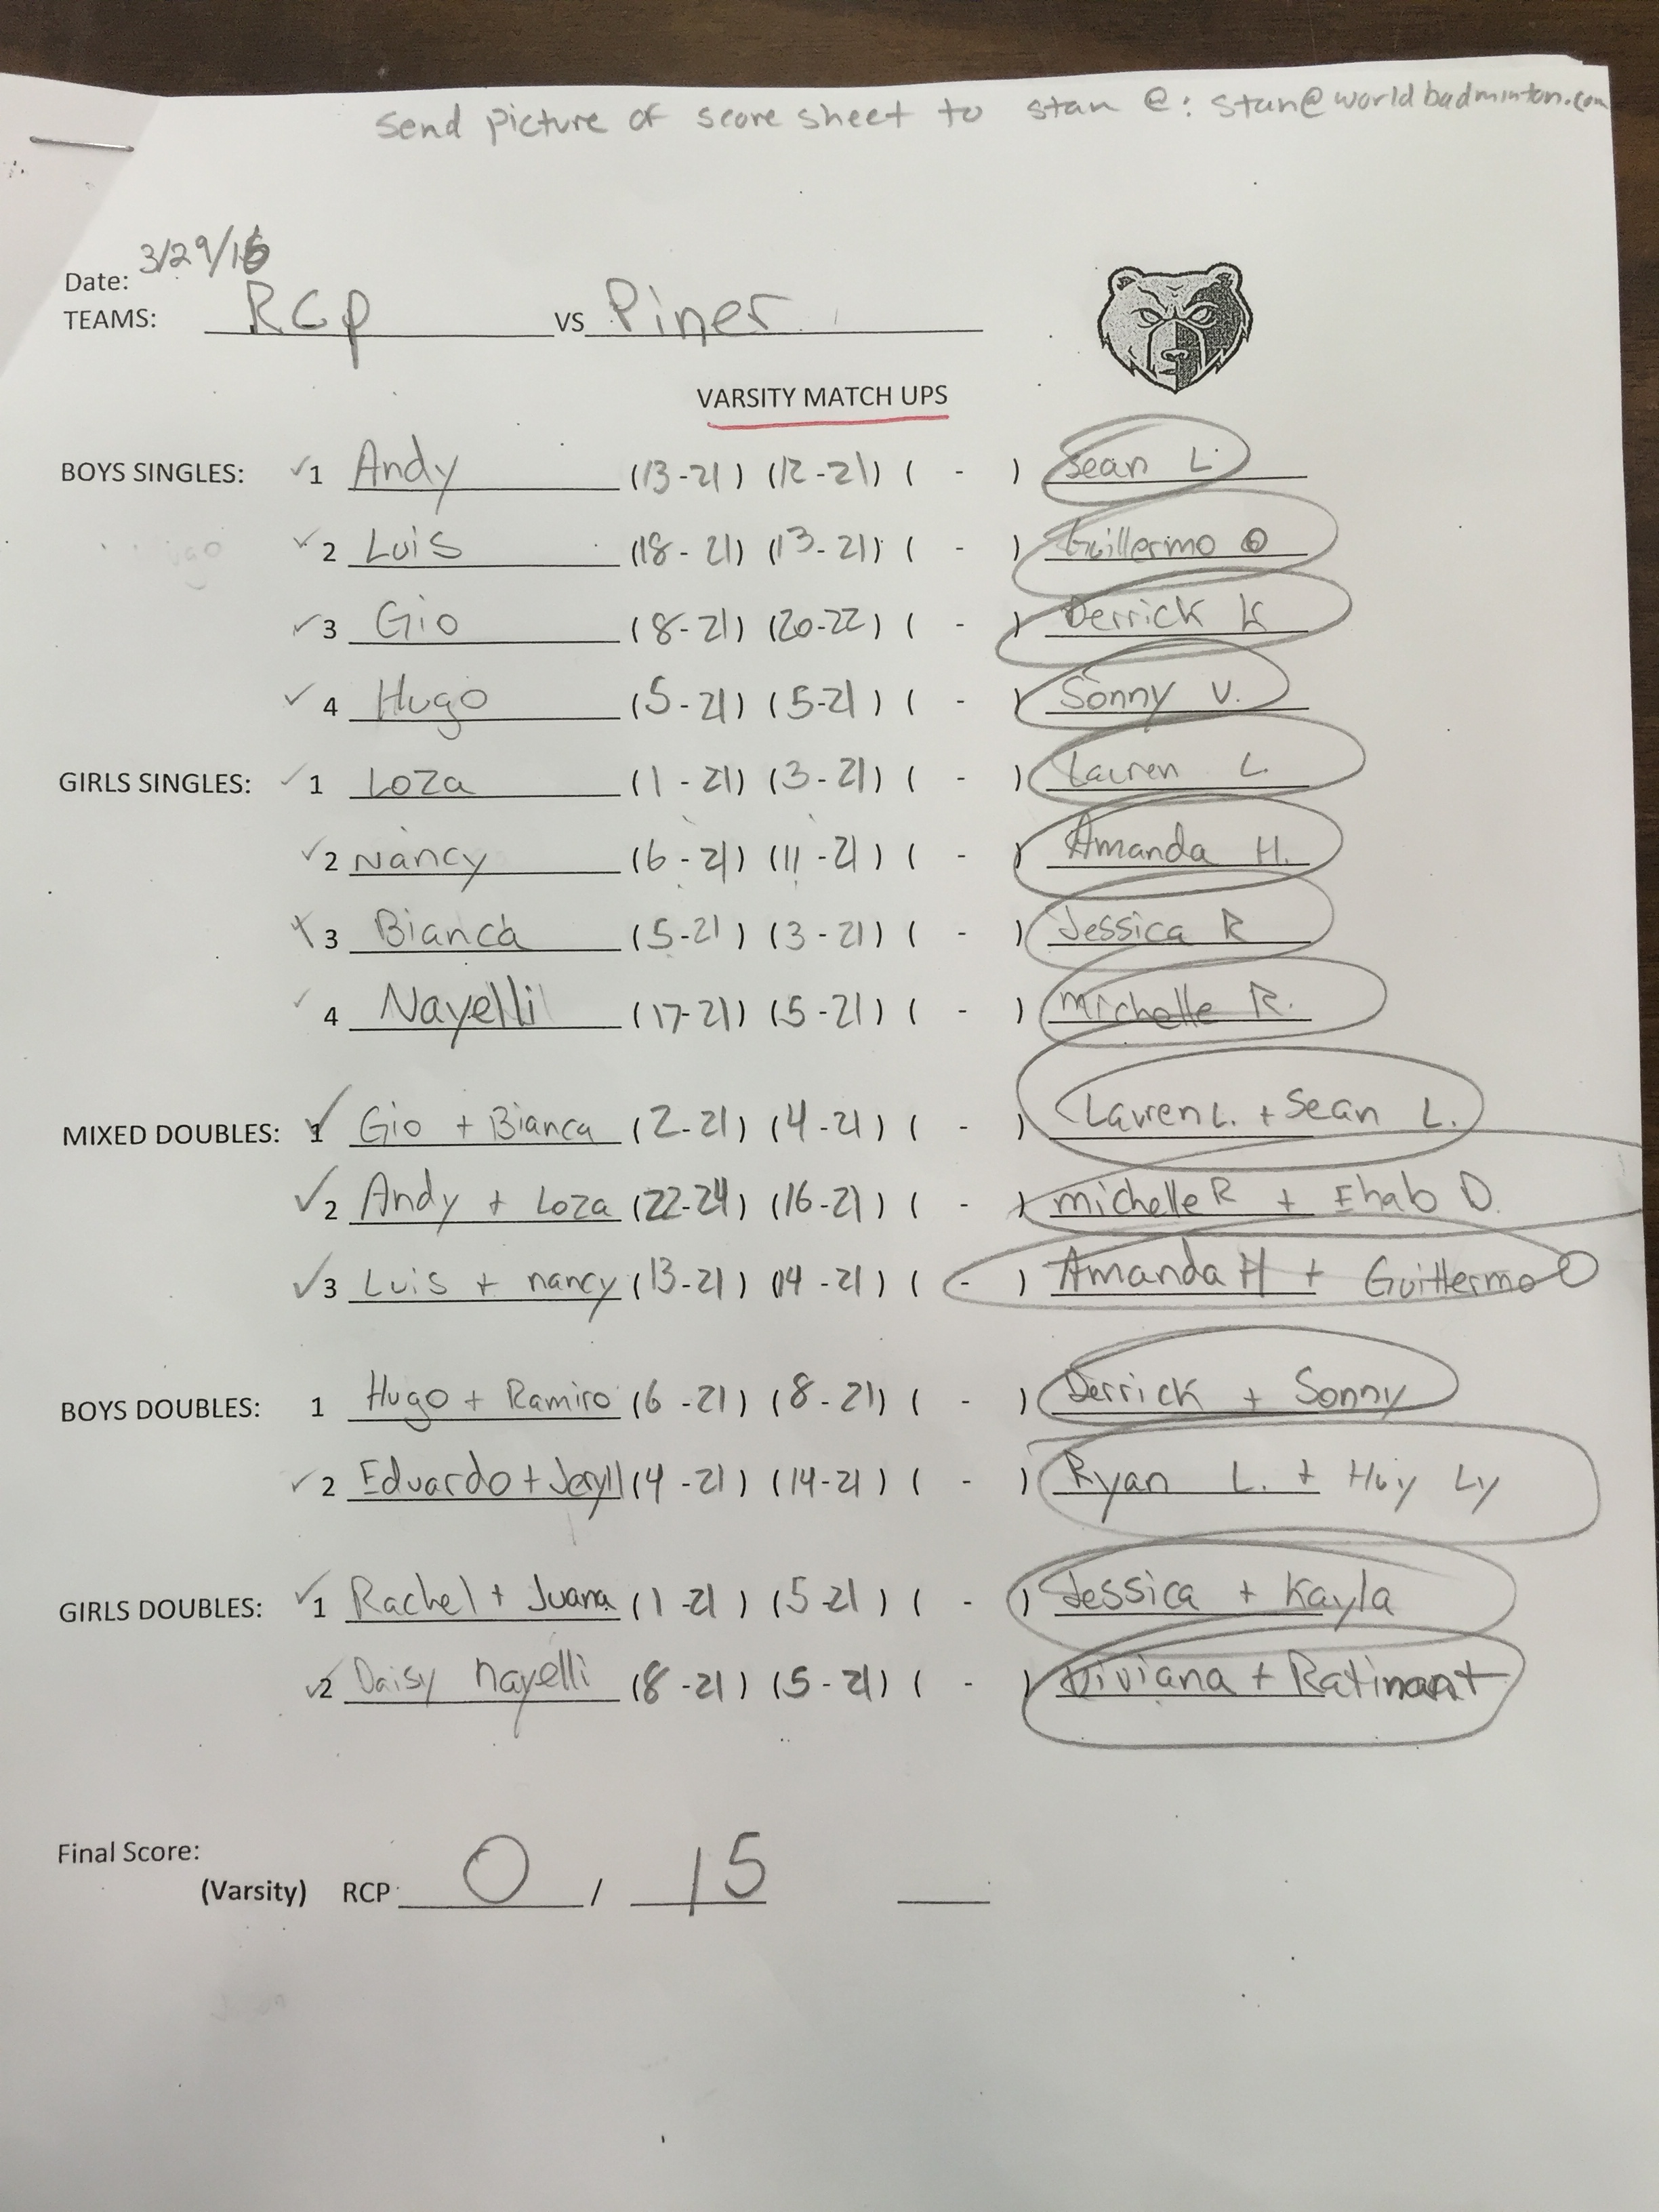 Send picture of score sheet to stan @: stan@worldbadminton.com
Date: 3/29/16
TEAMS: RCP vs Piner
VARSITY MATCH UPS
BOYS SINGLES: ✓1 Andy (13-21) (12-21) ( - ) Sean L.
✓2 Luis (18-21) (13-21) ( - ) Guillermo O
✓3 Gio (8-21) (20-22) ( - ) Derrick
✓4 Hugo (5-21) (5-21) ( - ) Sonny V.
GIRLS SINGLES: ✓1 Loza (1-21) (3-21) ( - ) Lauren L.
✓2 Nancy (6-21) (11-21) ( - ) Amanda H.
3 Bianca (5-21) (3-21) ( - ) Jessica R
✓4 Nayelli (17-21) (5-21) ( - ) Michelle R.
MIXED DOUBLES: ✓1 Gio + Bianca (2-21) (4-21) ( - ) Lauren L. + Sean L.
✓2 Andy + Loza (22-24) (16-21) ( - ) Michelle R + Ehab D.
✓3 Luis + nancy (13-21) (14-21) ( - ) Amanda H + Guillermo O
BOYS DOUBLES: 1 Hugo + Ramiro (6-21) (8-21) ( - ) Derrick + Sonny
✓2 Eduardo + Jeryll (4-21) (14-21) ( - ) Ryan L. + Huy Ly
GIRLS DOUBLES: ✓1 Rachel + Juana (1-21) (5-21) ( - ) Jessica + Kayla
✓2 Daisy Nayelli (8-21) (5-21) ( - ) Viviana +
Final Score:
(Varsity) RCP 0 / 15